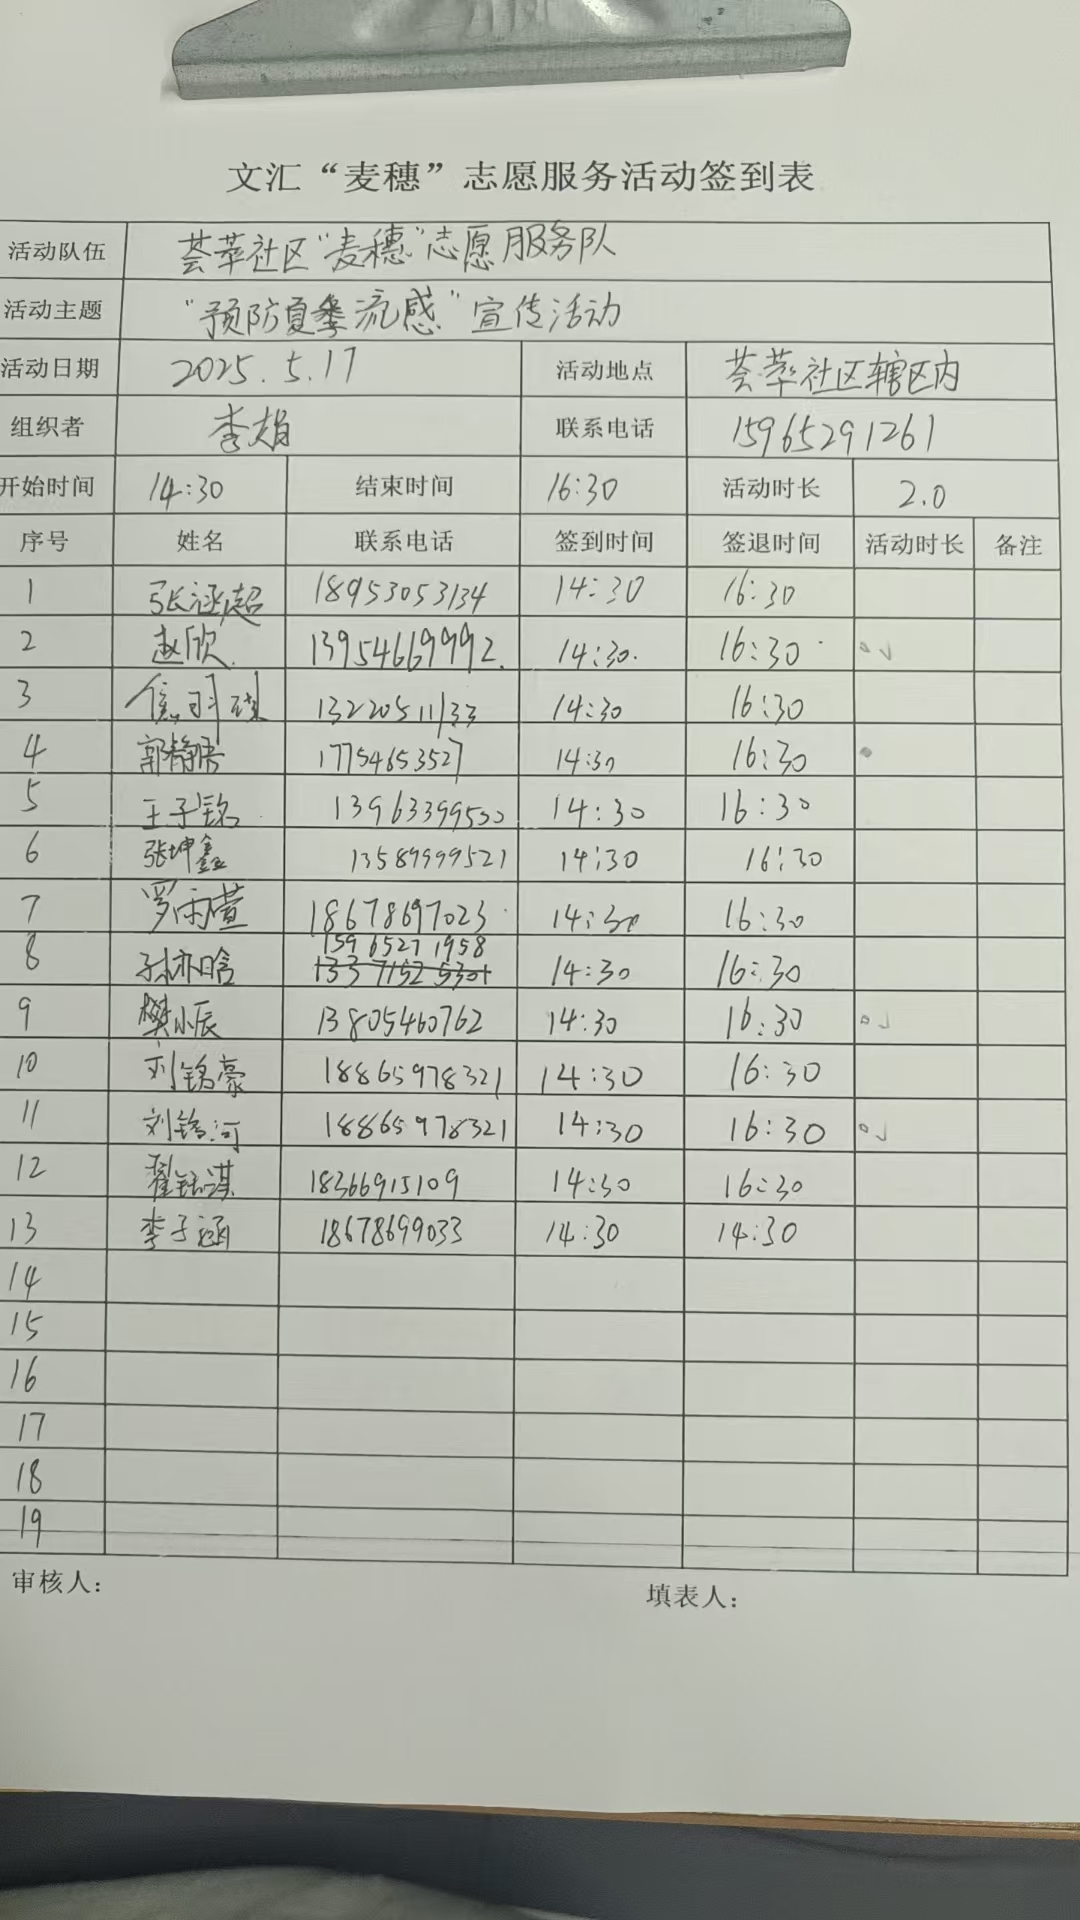 文汇“麦穗”志愿服务活动签到表
活动队伍 荟萃社区“麦穗”志愿服务队
活动主题 “预防夏季流感”宣传活动
活动日期 2025.5.17 活动地点 荟萃社区辖区内
组织者 李娟 联系电话 15965291261
开始时间 14:30 结束时间 16:30 活动时长 2.0
序号 姓名 联系电话 签到时间 签退时间 活动时长 备注
1 张涵超 18953053134 14:30 16:30
2 赵欣 13954669992 14:30 16:30
3 13220511133 14:30 16:30
4 郭静 17754653527 14:30 16:30
5 王子铭 13963399500 14:30 16:30
6 张坤鑫 13589999521 14:30 16:30
7 罗雨萱 18678697023 14:30 16:30
15965271958
8 孙亦晗 13371525301 14:30 16:30
9 樊小辰 13805460762 14:30 16:30
10 刘铭豪 18865978321 14:30 16:30
11 刘铭河 18865978321 14:30 16:30
12 翟钰淇 18366915109 14:30 16:30
13 李子涵 18678699033 14:30 14:30
14
15
16
17
18
19
审核人： 填表人：